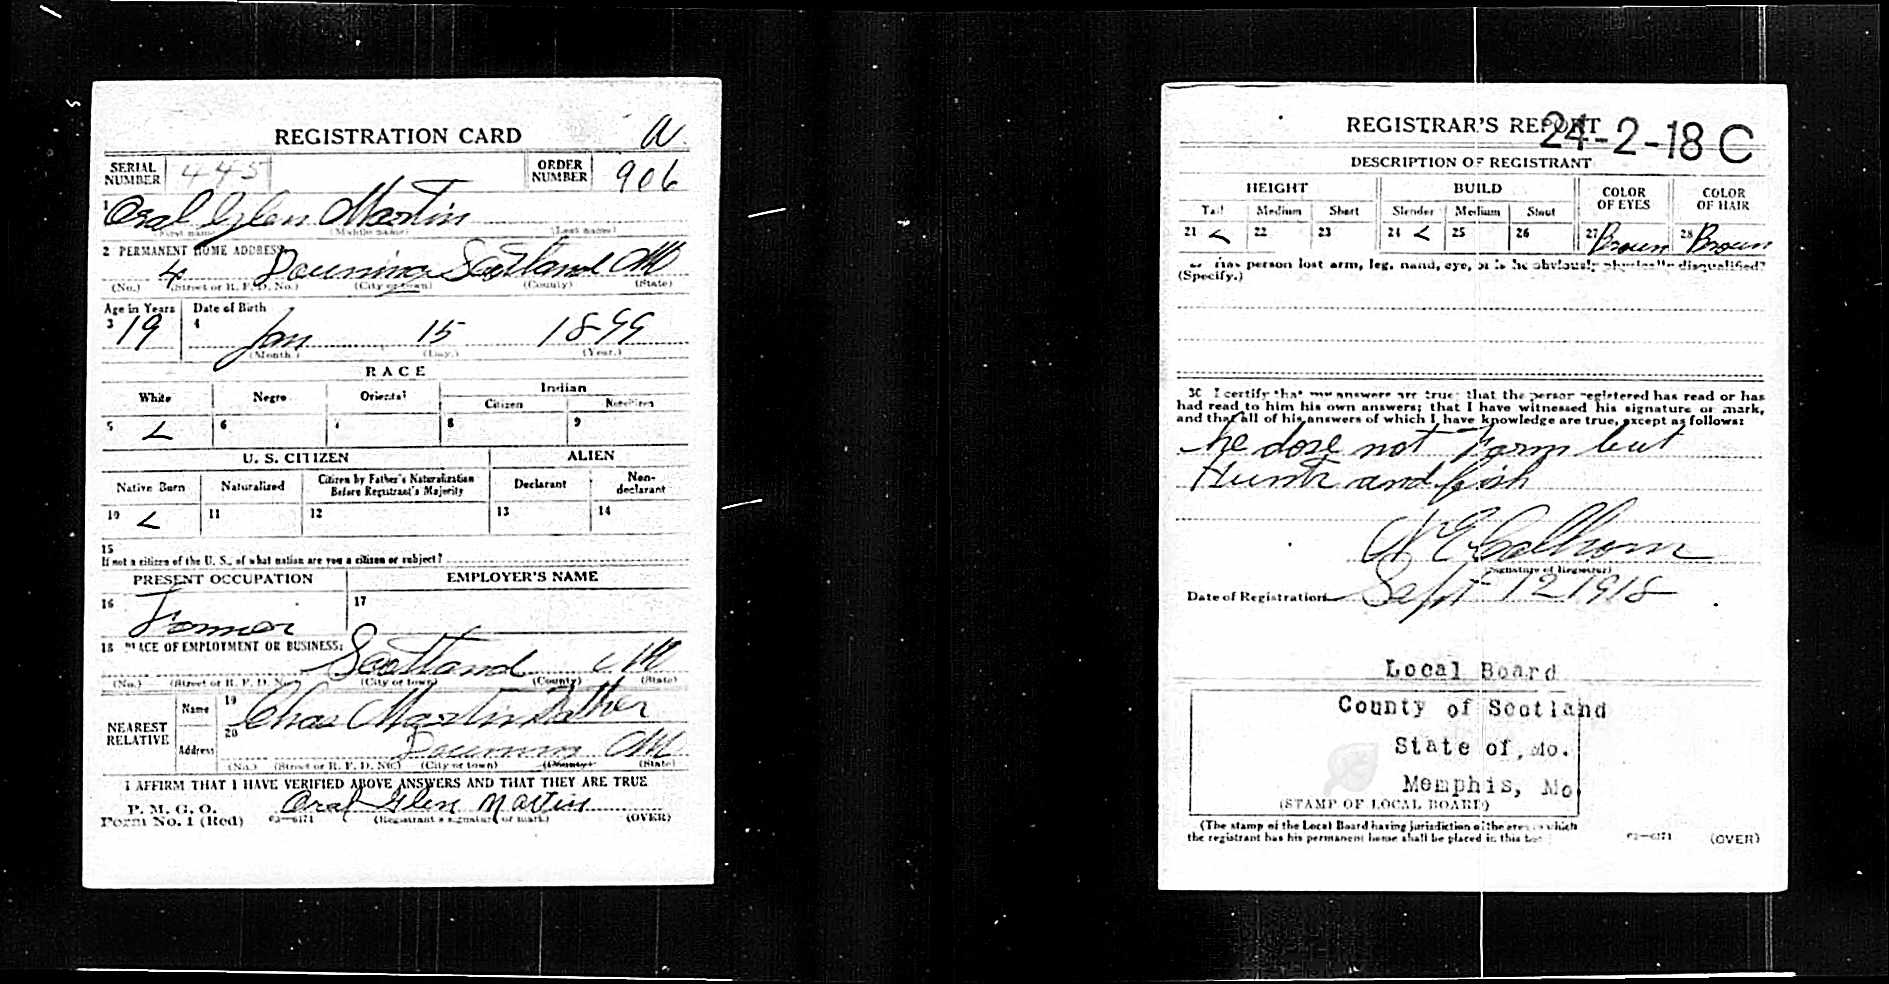 REGISTRATION CARD
SERIAL NUMBER 445 ORDER NUMBER 906
1 Oral Glen Martin
(First name) (Middle name) (Last name)
2 PERMANENT HOME ADDRESS
4 Downing Scotland Mo
(No.) (Street or R. F. D. No.) (City or town) (County) (State)
Age in Years Date of Birth
3 19 4 Jan 15 1899
(Month.) (Day.) (Year.)
RACE
White Negro Oriental Indian
Citizen Noncitizen
5 6 7 8 9
U. S. CITIZEN ALIEN
Native Born Naturalized Citizen by Father's Naturalization Before Registrant's Majority Declarant Non-declarant
10 11 12 13 14
15
If not a citizen of the U. S., of what nation are you a citizen or subject?
PRESENT OCCUPATION EMPLOYER'S NAME
16 Farmer 17
18 PLACE OF EMPLOYMENT OR BUSINESS:
Scotland Mo
(No.) (Street or R. F. D. No.) (City or town) (County) (State)
NEAREST RELATIVE Name 19 Chas Martin Father
Address 20 Downing Mo
(No.) (Street or R. F. D. No.) (City or town) (County) (State)
I AFFIRM THAT I HAVE VERIFIED ABOVE ANSWERS AND THAT THEY ARE TRUE
P. M. G. O.
Form No. 1 (Red) Oral Glen Martin
03—6171 (Registrant's signature or mark) (OVER)
REGISTRAR'S REPORT
24-2-18 C
DESCRIPTION OF REGISTRANT
HEIGHT BUILD COLOR OF EYES COLOR OF HAIR
Tall Medium Short Slender Medium Stout
21 22 23 24 25 26 27 Brown 28 Brown
Has person lost arm, leg, hand, eye, or is he obviously physically disqualified?
(Specify.)
30 I certify that my answers are true; that the person registered has read or has
had read to him his own answers; that I have witnessed his signature or mark,
and that all of his answers of which I have knowledge are true, except as follows:
he dose not Farm but
Hunts and fish
Calhoun
(Signature of Registrar)
Date of Registration Sept 12 1918
Local Board
County of Scotland
State of, Mo.
Memphis, Mo
(STAMP OF LOCAL BOARD)
(The stamp of the Local Board having jurisdiction of the area in which
the registrant has his permanent home shall be placed in this box.)
03—6171 (OVER)